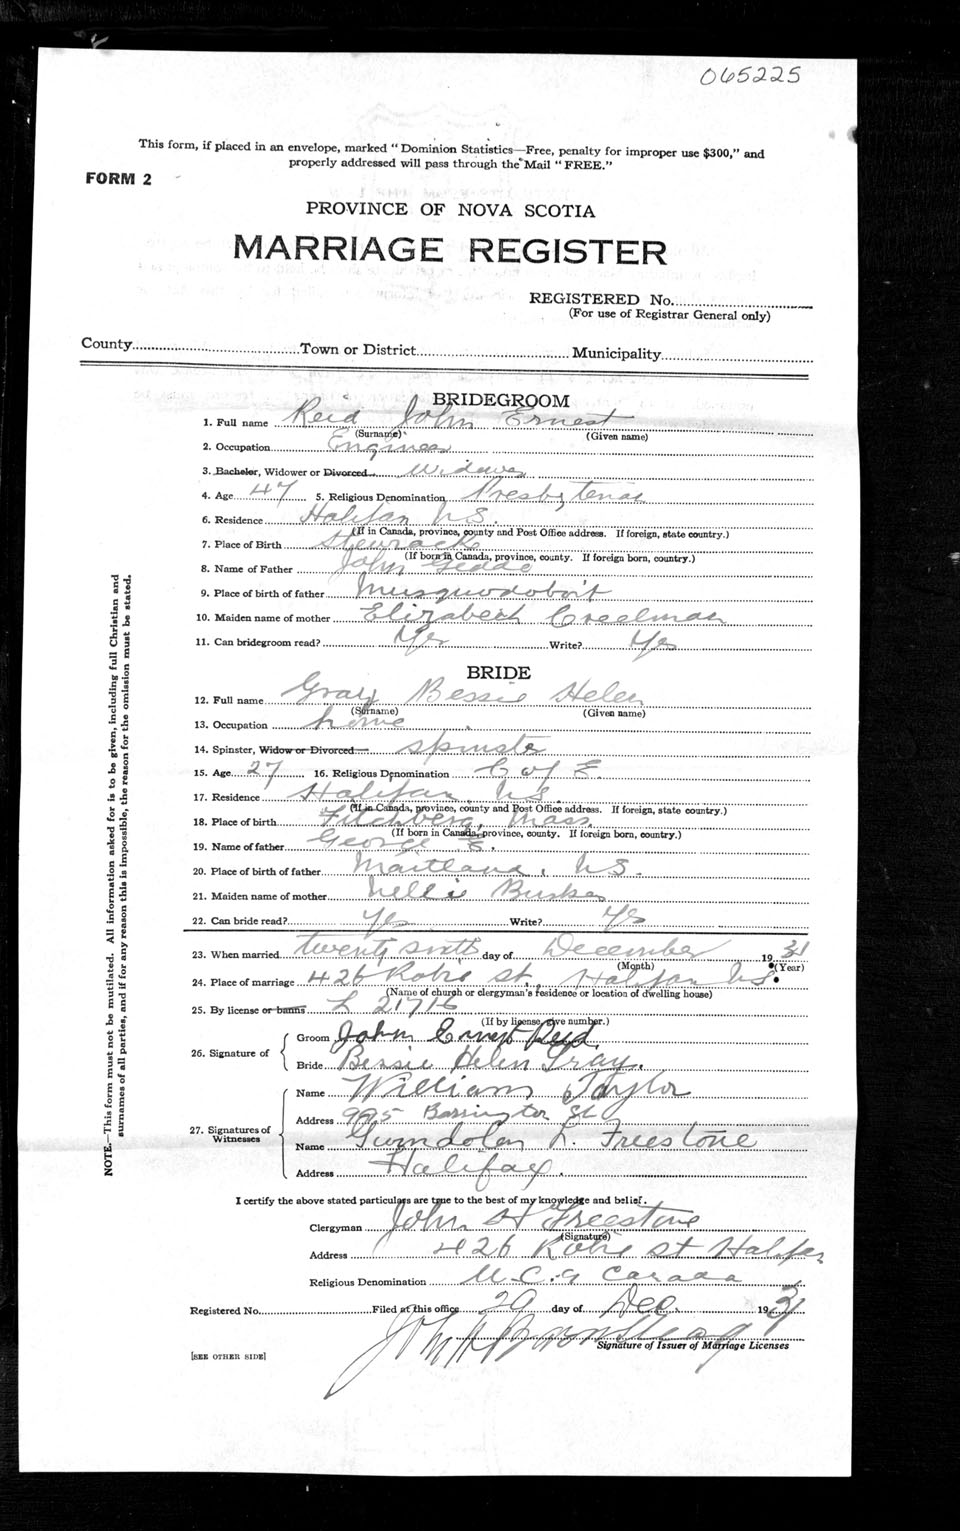 065225
This form, if placed in an envelope, marked "Dominion Statistics—Free, penalty for improper use $300," and
properly addressed will pass through the Mail "FREE."
FORM 2
PROVINCE OF NOVA SCOTIA
MARRIAGE REGISTER
REGISTERED No.
(For use of Registrar General only)
County Town or District Municipality
BRIDEGROOM
1. Full name Reid John Ernest
(Surname) (Given name)
2. Occupation Engineer
3. Bachelor, Widower or Divorced Widower
4. Age 47 5. Religious Denomination Presbyterian
6. Residence Halifax N.S.
(If in Canada, province, county and Post Office address. If foreign, state country.)
7. Place of Birth
(If born in Canada, province, county. If foreign born, country.)
8. Name of Father John
9. Place of birth of father Musquodoboit
10. Maiden name of mother Elizabeth Creelman
11. Can bridegroom read? Yes Write? Yes
BRIDE
12. Full name Gray Bessie Helen
(Surname) (Given name)
13. Occupation home
14. Spinster, Widow or Divorced spinster
15. Age 27 16. Religious Denomination C of E.
17. Residence Halifax, N.S.
(If in Canada, province, county and Post Office address. If foreign, state country.)
18. Place of birth Fitchberg, Mass
(If born in Canada, province, county. If foreign born, country.)
19. Name of father George E.
20. Place of birth of father Maitland, N.S.
21. Maiden name of mother Nellie
22. Can bride read? Yes Write? Yes
23. When married twenty sixth day of December 1931
(Month) (Year)
24. Place of marriage 426 Robie St, Halifax N.S.
(Name of church or clergyman's residence or location of dwelling house)
25. By license or banns L 21716
(If by license, give number.)
26. Signature of
Groom John Ernest Reid.
Bride Bessie Helen Gray.
27. Signatures of Witnesses
Name William Taylor
Address 995 Barrington St
Name Gwendolen L. Freestone
Address Halifax.
I certify the above stated particulars are true to the best of my knowledge and belief.
Clergyman John H Freestone
(Signature)
Address 426 Robie St Halifax
Religious Denomination U.C. of Canada
Registered No. Filed at this office 29 day of Dec. 1931
Signature of Issuer of Marriage Licenses
[SEE OTHER SIDE]
NOTE.—This form must not be mutilated. All information asked for is to be given, including full Christian and
surnames of all parties, and if for any reason this is impossible, the reason for the omission must be stated.